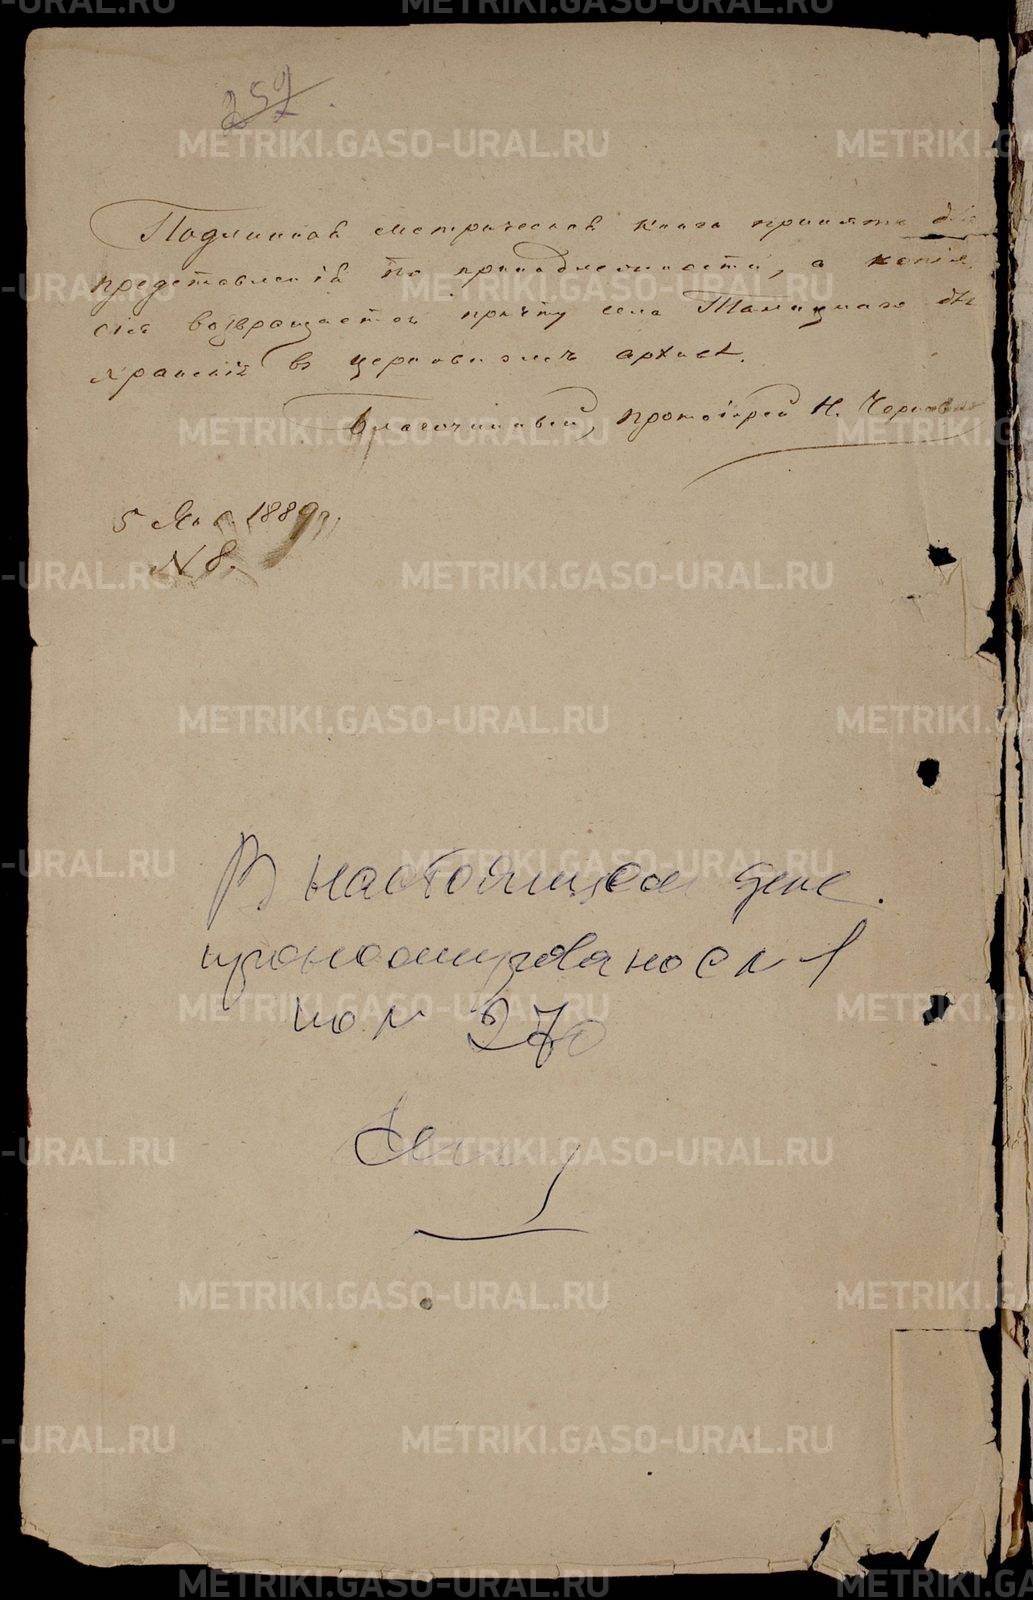 259
Подлинная метрическая книга принята для
представленія по принадлежности, а копія
сія возвращается причту села Тамицкаго для
храненія въ церковномъ архивѣ.
Благочинный, протоіерей Н.
5 Янв. 1889 г.
N 8.
В настоящем деле
пронумеровано с л 1
по л 270
METRIKI.GASO-URAL.RU